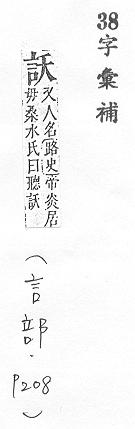 38字彙補
訞
又人名路史帝炎居
毋桑水氏曰聽訞
(言部.P208)